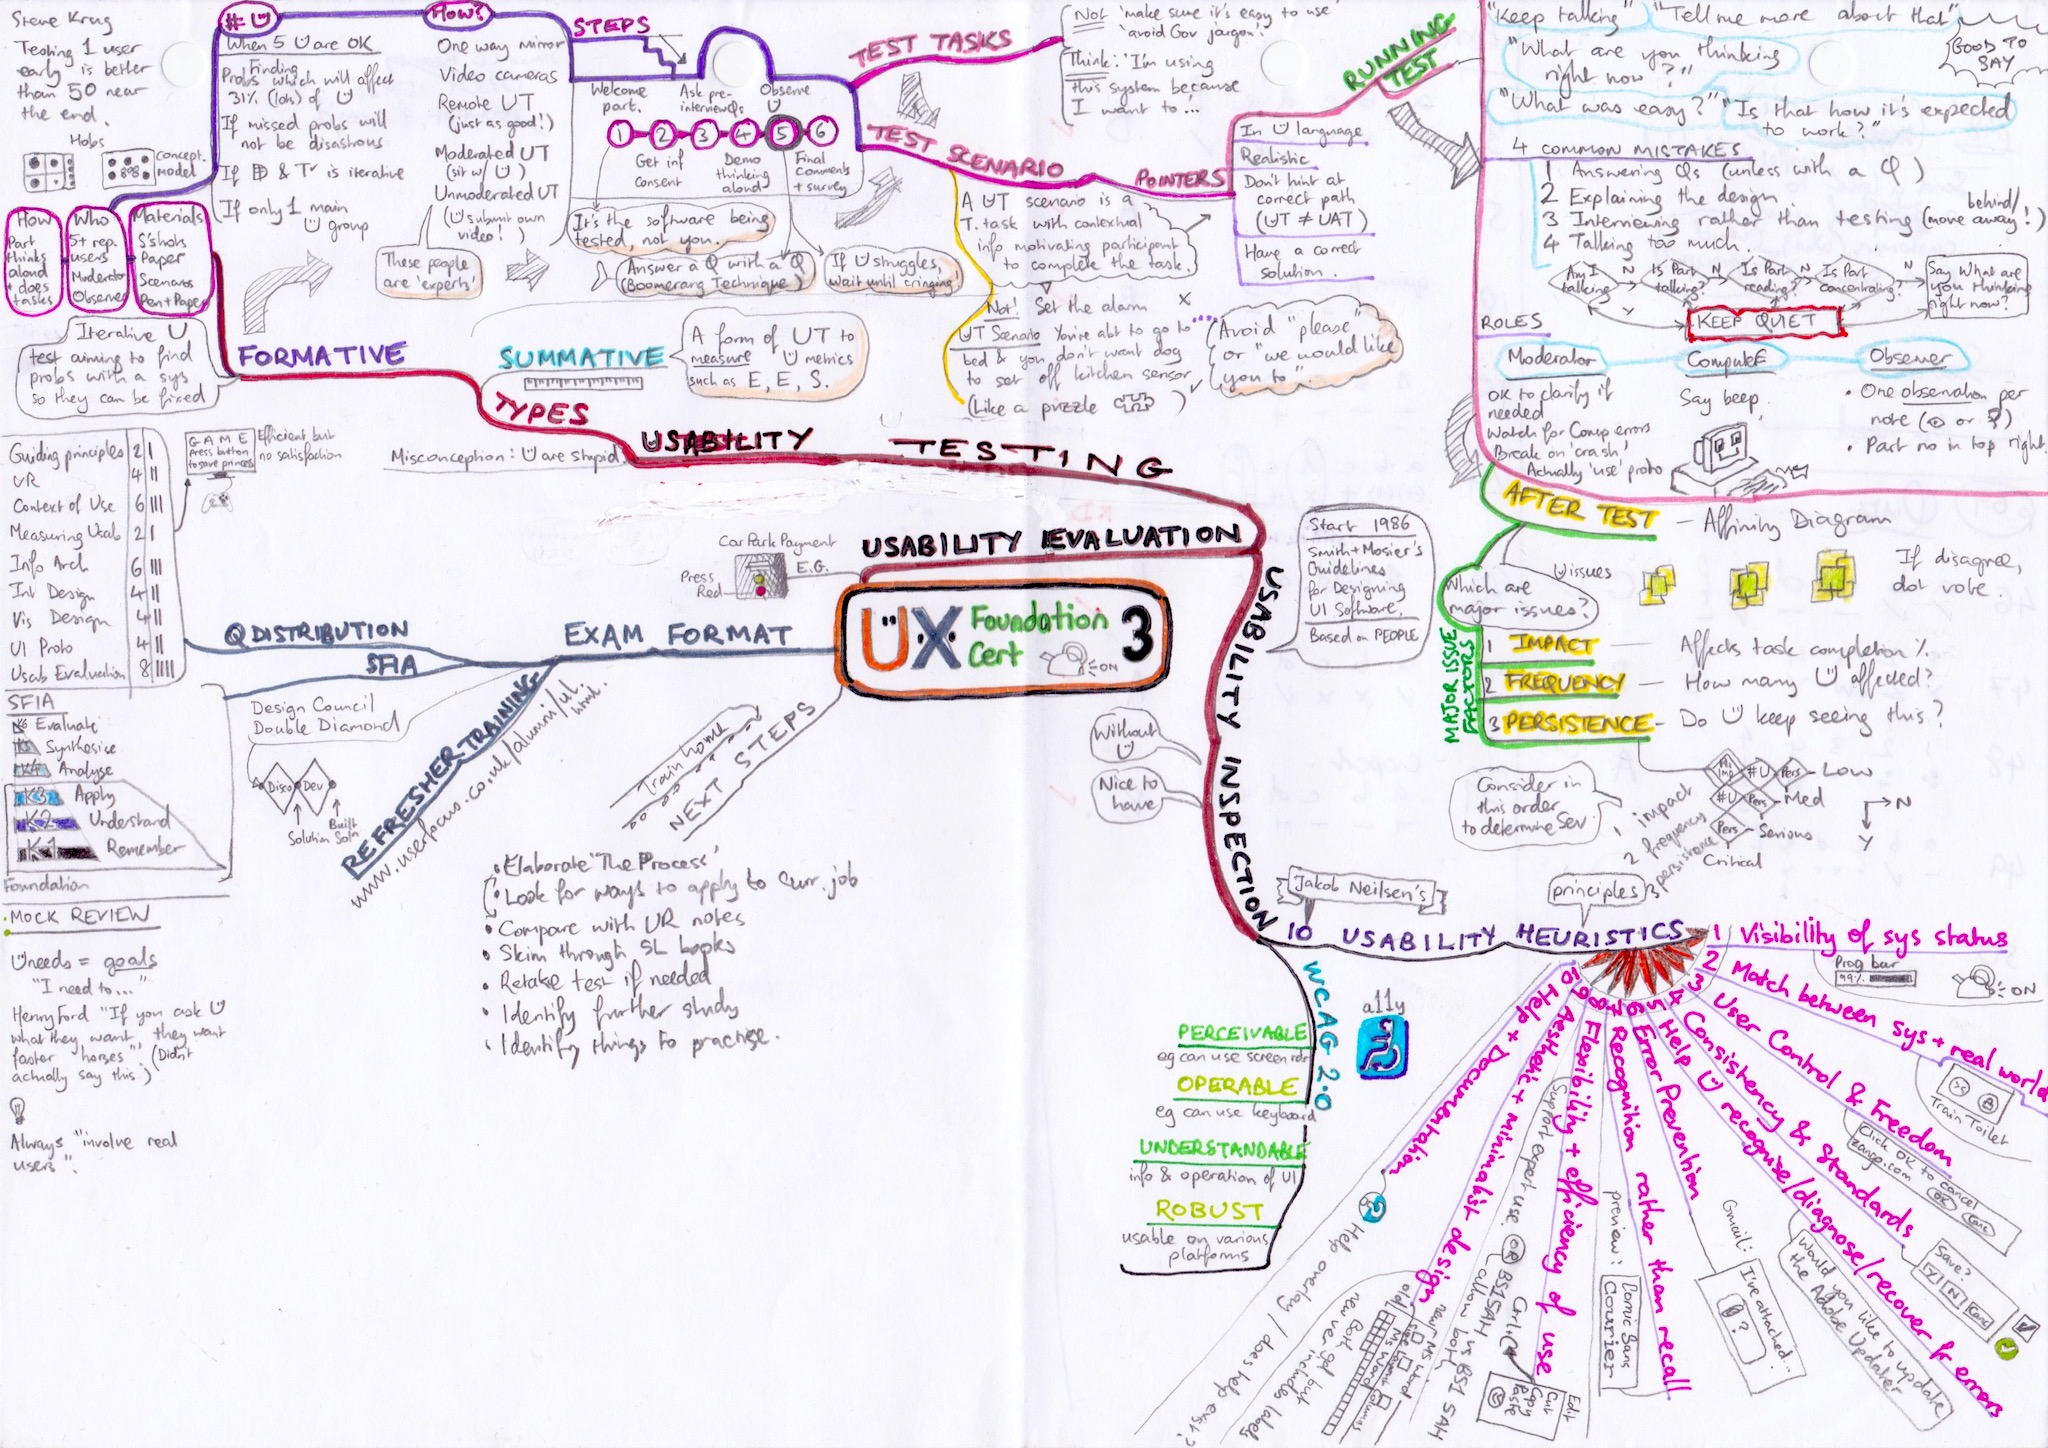 Steve Krug
Testing 1 user
early is better
than 50 near
the end.
Hobs
concept.
model
# Ü
When 5 Ü are OK
Finding
Probs which will affect
31% (lots) of Ü
If missed probs will
not be disastrous
If D & T is iterative
If only 1 main
Ü group
How?
One way mirror
Video cameras
Remote UT
(just as good!)
Moderated UT
(sit w/ Ü)
Unmoderated UT
(Ü submit own
video!)
These people
are 'experts'
STEPS
Welcome
part.
Ask pre-
interview Qs
Observe
Ü
1 2 3 4 5 6
Get inf
consent
Demo
thinking
aloud
Final
comments
+ survey
It's the software being
tested, not you.
Answer a Q with a Q
(Boomerang Technique)
If Ü struggles,
wait until cringing!
How
Part
thinks
aloud
+ does
tasks
Who
5+ rep.
users
Moderator
Observer
Materials
S'shots
Paper
Scenarios
Pen + Paper
Iterative Ü
test aiming to find
probs with a sys
so they can be fixed
FORMATIVE
SUMMATIVE
A form of UT to
measure Ü metrics
such as E, E, S.
TYPES
TEST TASKS
Not 'make sure it's easy to use'
'avoid Gov jargon'.
Think: 'I'm using
this system because
I want to...
TEST SCENARIO
A UT scenario is a
T. task with contextual
info motivating participant
to complete the task.
Not! Set the alarm X
UT Scenario You're abt to go to
bed & you don't want dog
to set off kitchen sensor
(Like a puzzle )
Avoid "please"
or "we would like
you to".
POINTERS
In Ü language
Realistic
Don't hint at
correct path
(UT ≠ UAT)
Have a correct
solution.
RUNNING
TEST
"Keep talking" "Tell me more about that"
"What are you thinking
right now?"
"What was easy?" "Is that how it's expected
to work?"
GOOD TO
SAY
4 COMMON MISTAKES
1 Answering Qs (unless with a Q)
2 Explaining the design.
3 Interviewing rather than testing (behind/
move away!)
4 Talking too much.
Am I
talking
N
Is Part
talking?
N
Is Part
reading?
N
Is Part
concentrating?
N
Say What are
you thinking
right now?
Y
KEEP QUIET
ROLES
Moderator
OK to clarify if
needed
Watch for Comp errors
Break on 'crash'
Actually 'use' proto
ComputE
Say beep.
Observer
• One observation per
note
• Part no in top right.
Misconception: Ü are stupid.
USABILITY TESTING
USABILITY EVALUATION
Car Park Payment
E.G.
Press
Red
UX Foundation
Cert 3
ON
Guiding principles 2 |
UR 4 ||
Context of Use 6 |||
Measuring Usab 2 |
Info Arch 6 |||
Int Design 4 ||
Vis Design 4 ||
UI Proto 4 ||
Usab Evaluation 8 ||||
GAME
Press button
to save princess
Efficient but
no satisfaction
Q DISTRIBUTION
SFIA
EXAM FORMAT
SFIA
K6 Evaluate
K5 Synthesise
K4 Analyse
K3 Apply
K2 Understand
K1 Remember
Foundation
Design Council
Double Diamond
Disco Dev
Solution
Built
Soln
REFRESHER TRAINING
www.userfocus.co.uk/alumni/ut.
html
Train home
NEXT STEPS
• Elaborate 'The Process'
• Look for ways to apply to curr. job
• Compare with UR notes
• Skim through SL books
• Retake test if needed
• Identify further study
• Identify things to practise.
• MOCK REVIEW
Ü needs = goals
"I need to..."
Henry Ford "If you ask Ü
what they want, they want
faster horses", (Didn't
actually say this.)
Always "involve real
users".
USABILITY INSPECTION
Start 1986
Smith + Mosier's
Guidelines
for Designing
UI Software.
Based on PEOPLE
Without
Ü
Nice to
have
AFTER TEST – Affinity Diagram
Ü issues
If disagree,
dot vote.
Which are
major issues?
MAJOR ISSUE
FACTORS
1 IMPACT – Affects task completion %
2 FREQUENCY – How many Ü affected?
3 PERSISTENCE – Do Ü keep seeing this?
Consider in
this order
to determine Sev.
1 impact
2 frequency
3 persistence
Hi
Imp
#Ü
Pers
Low
#Ü
Pers
Med
Pers
Serious
Critical
N
Y
Jakob Neilsen's
principles
10 USABILITY HEURISTICS
1 Visibility of sys status
Prog bar
99%
ON
2 Match between sys + real world
Train Toilet
3 User Control & Freedom
Click OK to cancel
zango.com
OK
Canc
4 Consistency & Standards
Save?
Y N Canc
5 Help Ü recognise/diagnose/recover fr errors
Would you like to update
the Adobe Updater
6 Error Prevention
Gmail:
I've attached...
?
7 Recognition rather than recall
preview:
Comic Sans
Courier
8 Flexibility + efficiency of use
(Support expert use. OR
Ctrl C
Edit
Cut
Copy
Paste
BS1 5AH
allow both vs BS1 5AH
9 Aesthetic + minimalist design
old MS Word
new MS Word
Both gd but
new ver includes labels
10 Help + Documentation
Help overlay / does help exist?
WCAG 2.0
a11y
PERCEIVABLE
eg can use screen rdr
OPERABLE
eg can use keyboard
UNDERSTANDABLE
info & operation of UI
ROBUST
usable on various
platforms